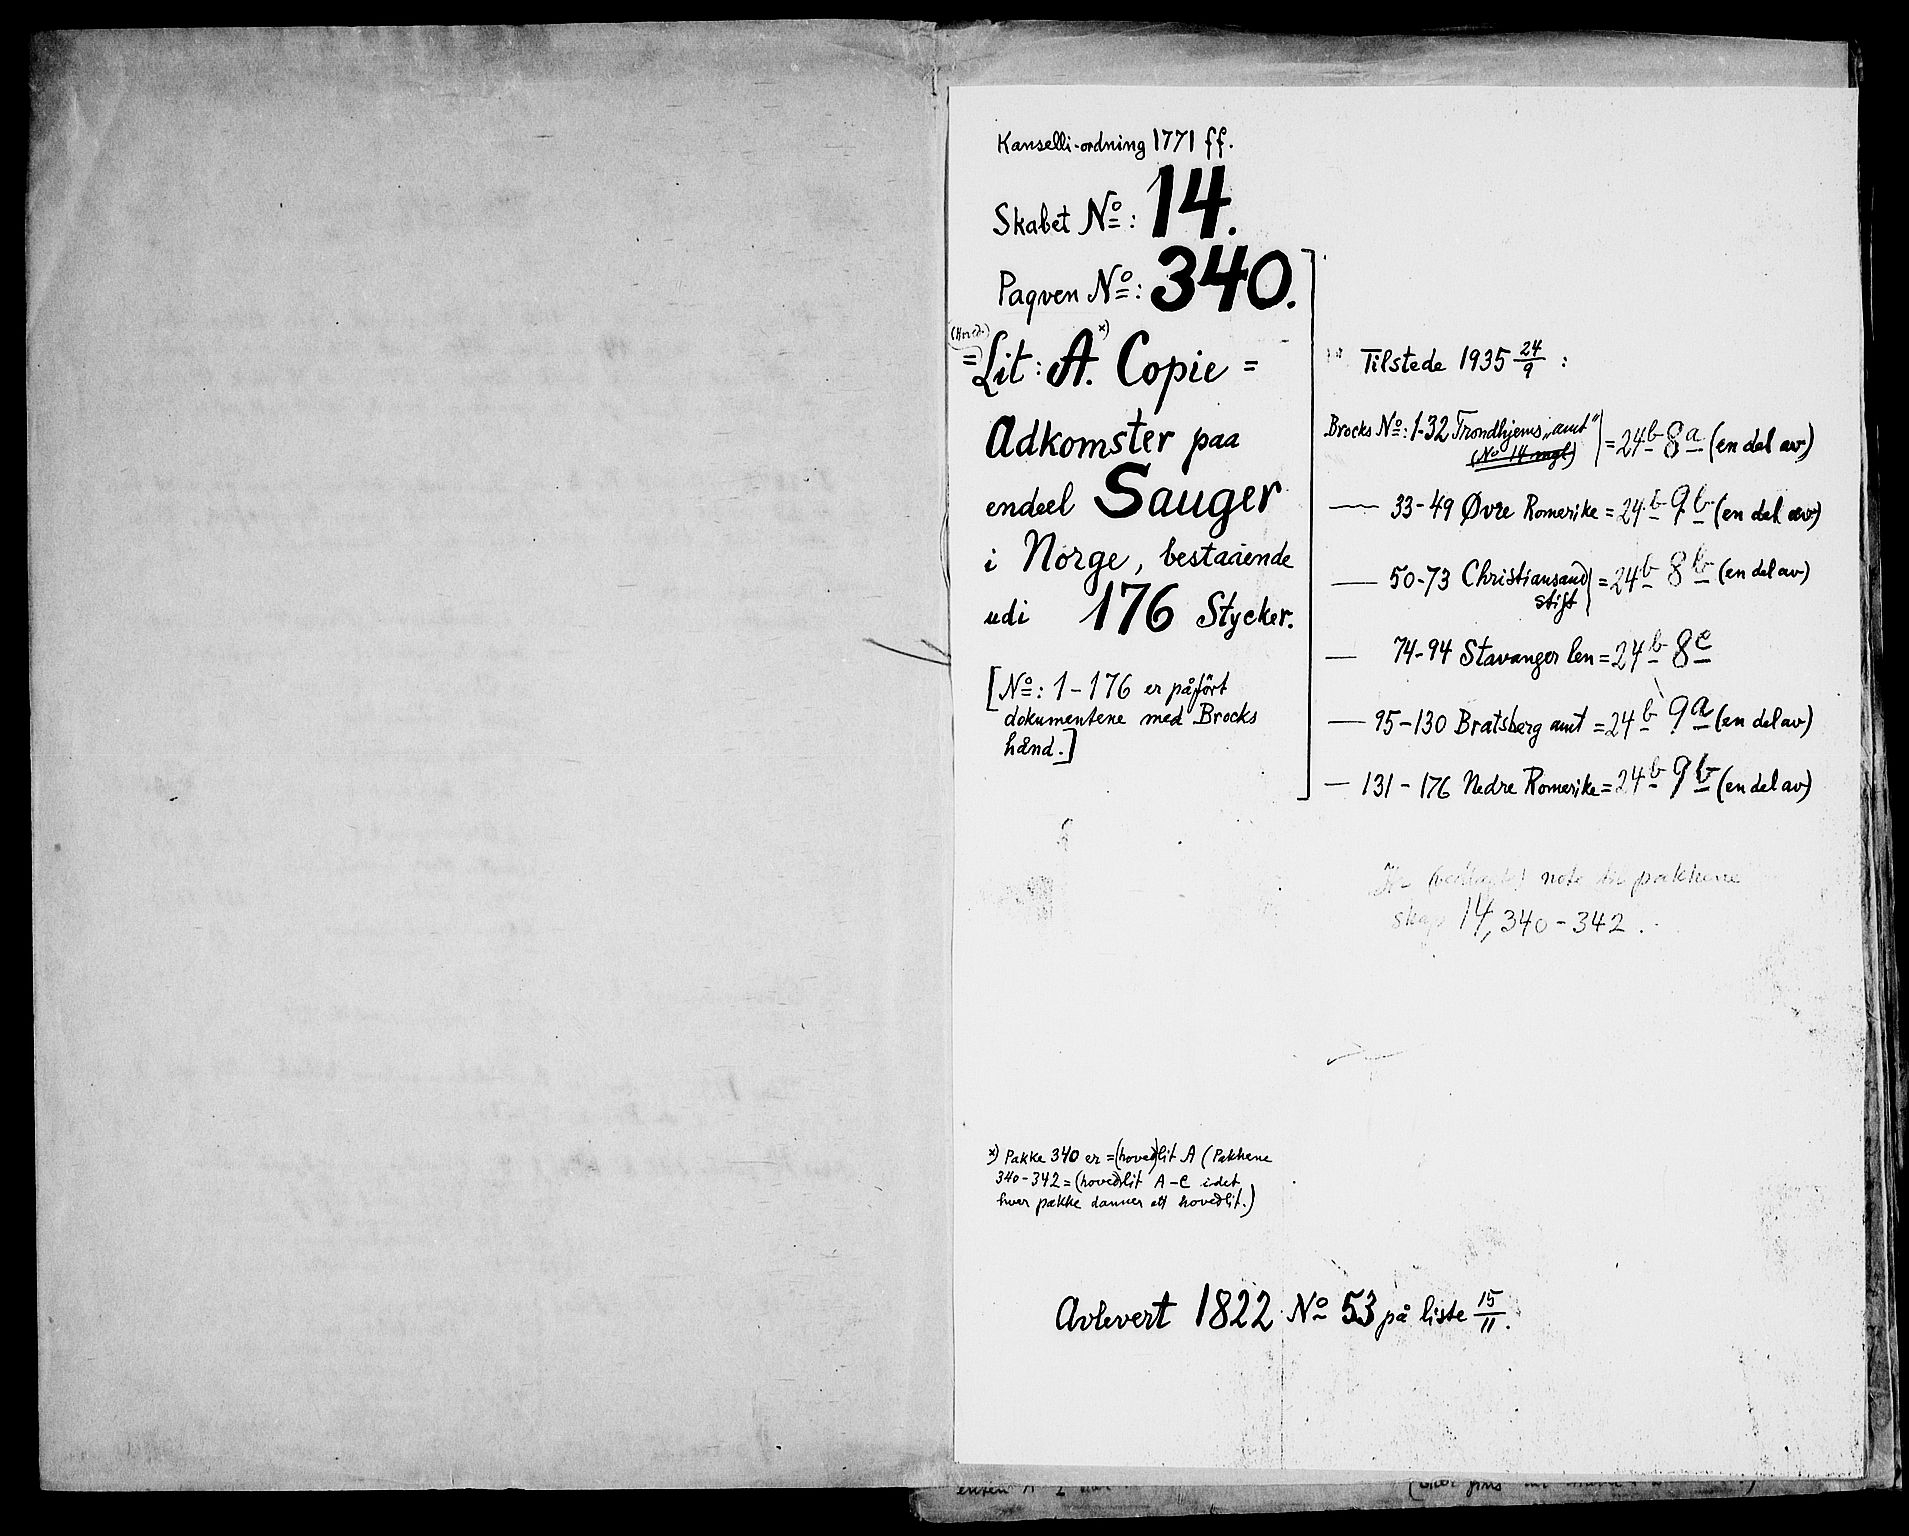 Kanselli-ordning 1771 ff.
Skabet No: 14.
Paqven No: 340.
(Hoved.)
= Lit: A. x) Copie =
Adkomster paa
endeel Sauger
i Norge, bestaaende
udi 176 Stycker.
[No: 1-176 er påført
dokumentene med Brocks
hånd.]
Tilstede 1935 24/9 :
Brocks No: 1-32 Trondhjems „amt" = 24b 8a (en del av)
(No 14 mgl)
— 33-49 Øvre Romerike = 24b 9b (en del av)
— 50-73 Christiansand = 24b 8b (en del av)
stift
— 74-94 Stavanger len = 24b 8c
— 95-130 Bratsberg amt = 24b 9a (en del av)
— 131-176 Nedre Romerike = 24b 9b (en del av)
note pakkene
skap 14, 340-342.
x) Pakke 340 er = (hoved)lit A (Pakkene
340-342 = (hoved)lit A-C idet
hver pakke danner ett hovedlit.)
Avlevert 1822 No 53 på liste 15/11.